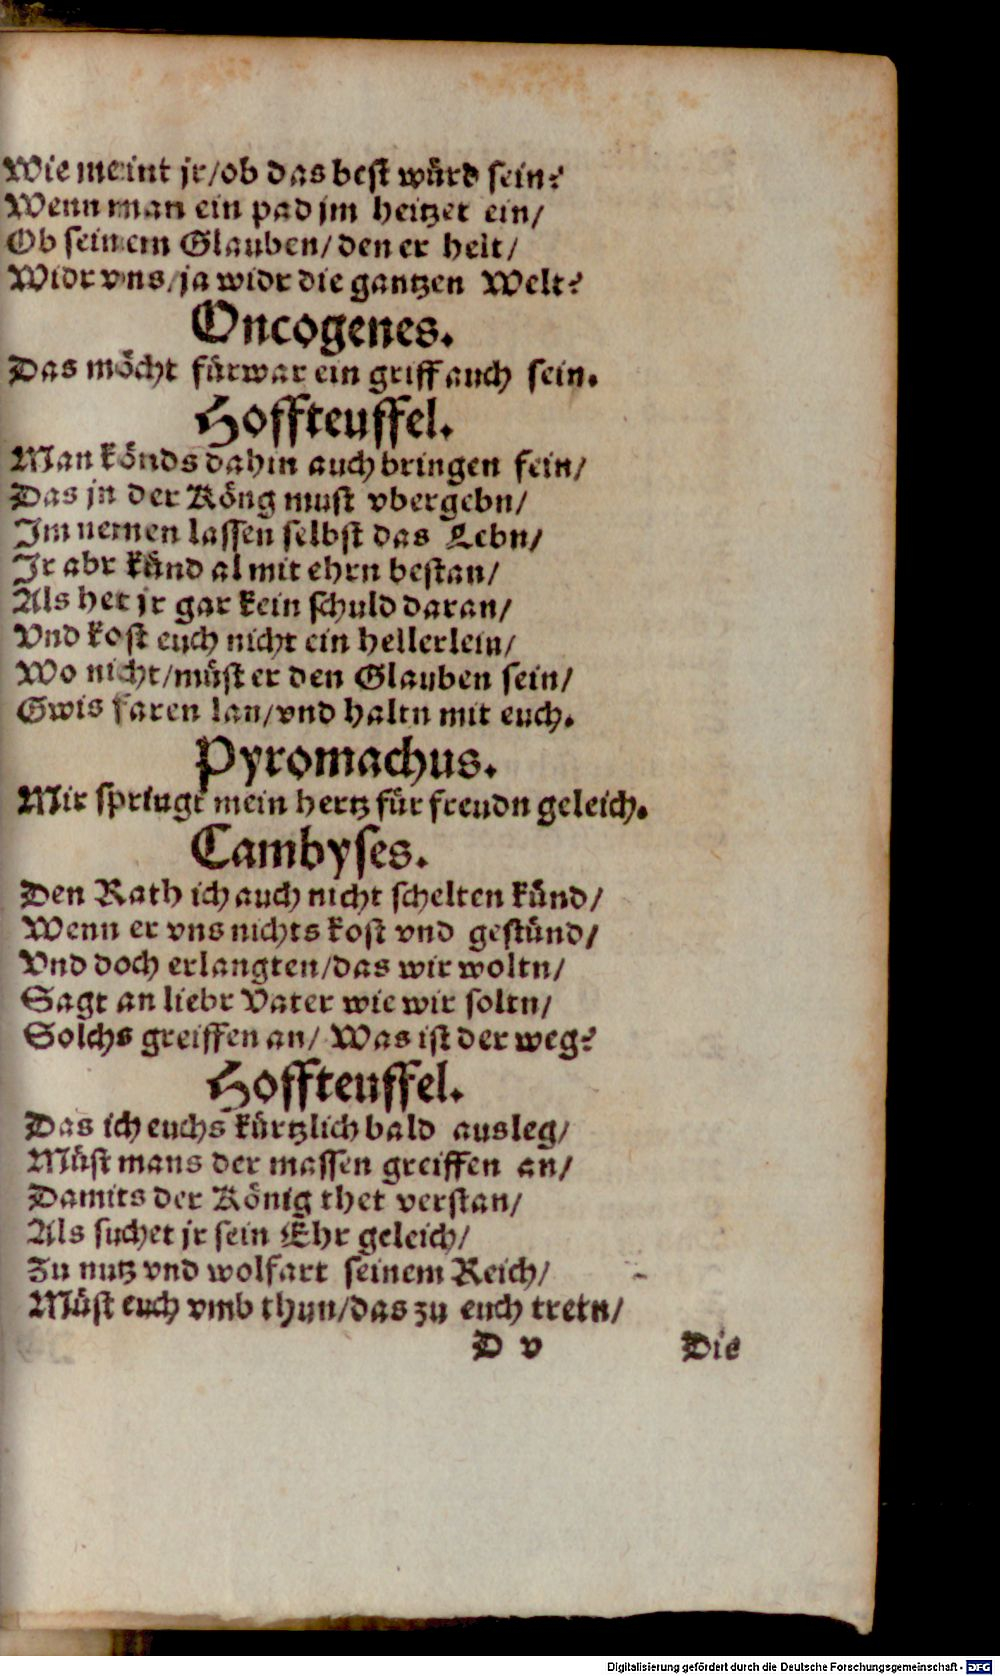 Wie meint jr/ob das best würd sein?
Wenn man ein pad jm heitzet ein/
Ob seinem Glauben/den er helt/
Widr vns/ja widr die gantzen Welt?
Oncogenes.
Das möcht fürwar ein griff auch sein.
Hoffteuffel.
Man könds dahin auch bringen fein/
Das jn der Köng must vbergebn/
Im nemen lassen selbst das Lebn/
Ir abr künd al mit ehrn bestan/
Als het jr gar kein schuld daran/
Vnd kost euch nicht ein hellerlein/
Wo nicht/müst er den Glauben sein/
Gwis faren lan/vnd haltn mit euch.
Pyromachus.
Mir springt mein hertz für freudn geleich.
Cambyses.
Den Rath ich auch nicht schelten künd/
Wenn er vns nichts kost vnd gestünd/
Vnd doch erlangten/das wir woltn/
Sagt an liebr Vater wie wir soltn/
Solchs greiffen an/ Was ist der weg?
Hoffteuffel.
Das ich euchs kürtzlich bald ausleg/
Müst mans der massen greiffen an/
Damits der König thet verstan/
Als suchet jr sein Ehr geleich/
Zu nutz vnd wolfart seinem Reich/
Müst euch vmb thun/das zu euch tretn/
D v Die
Digitalisierung gefördert durch die Deutsche Forschungsgemeinschaft - DFG